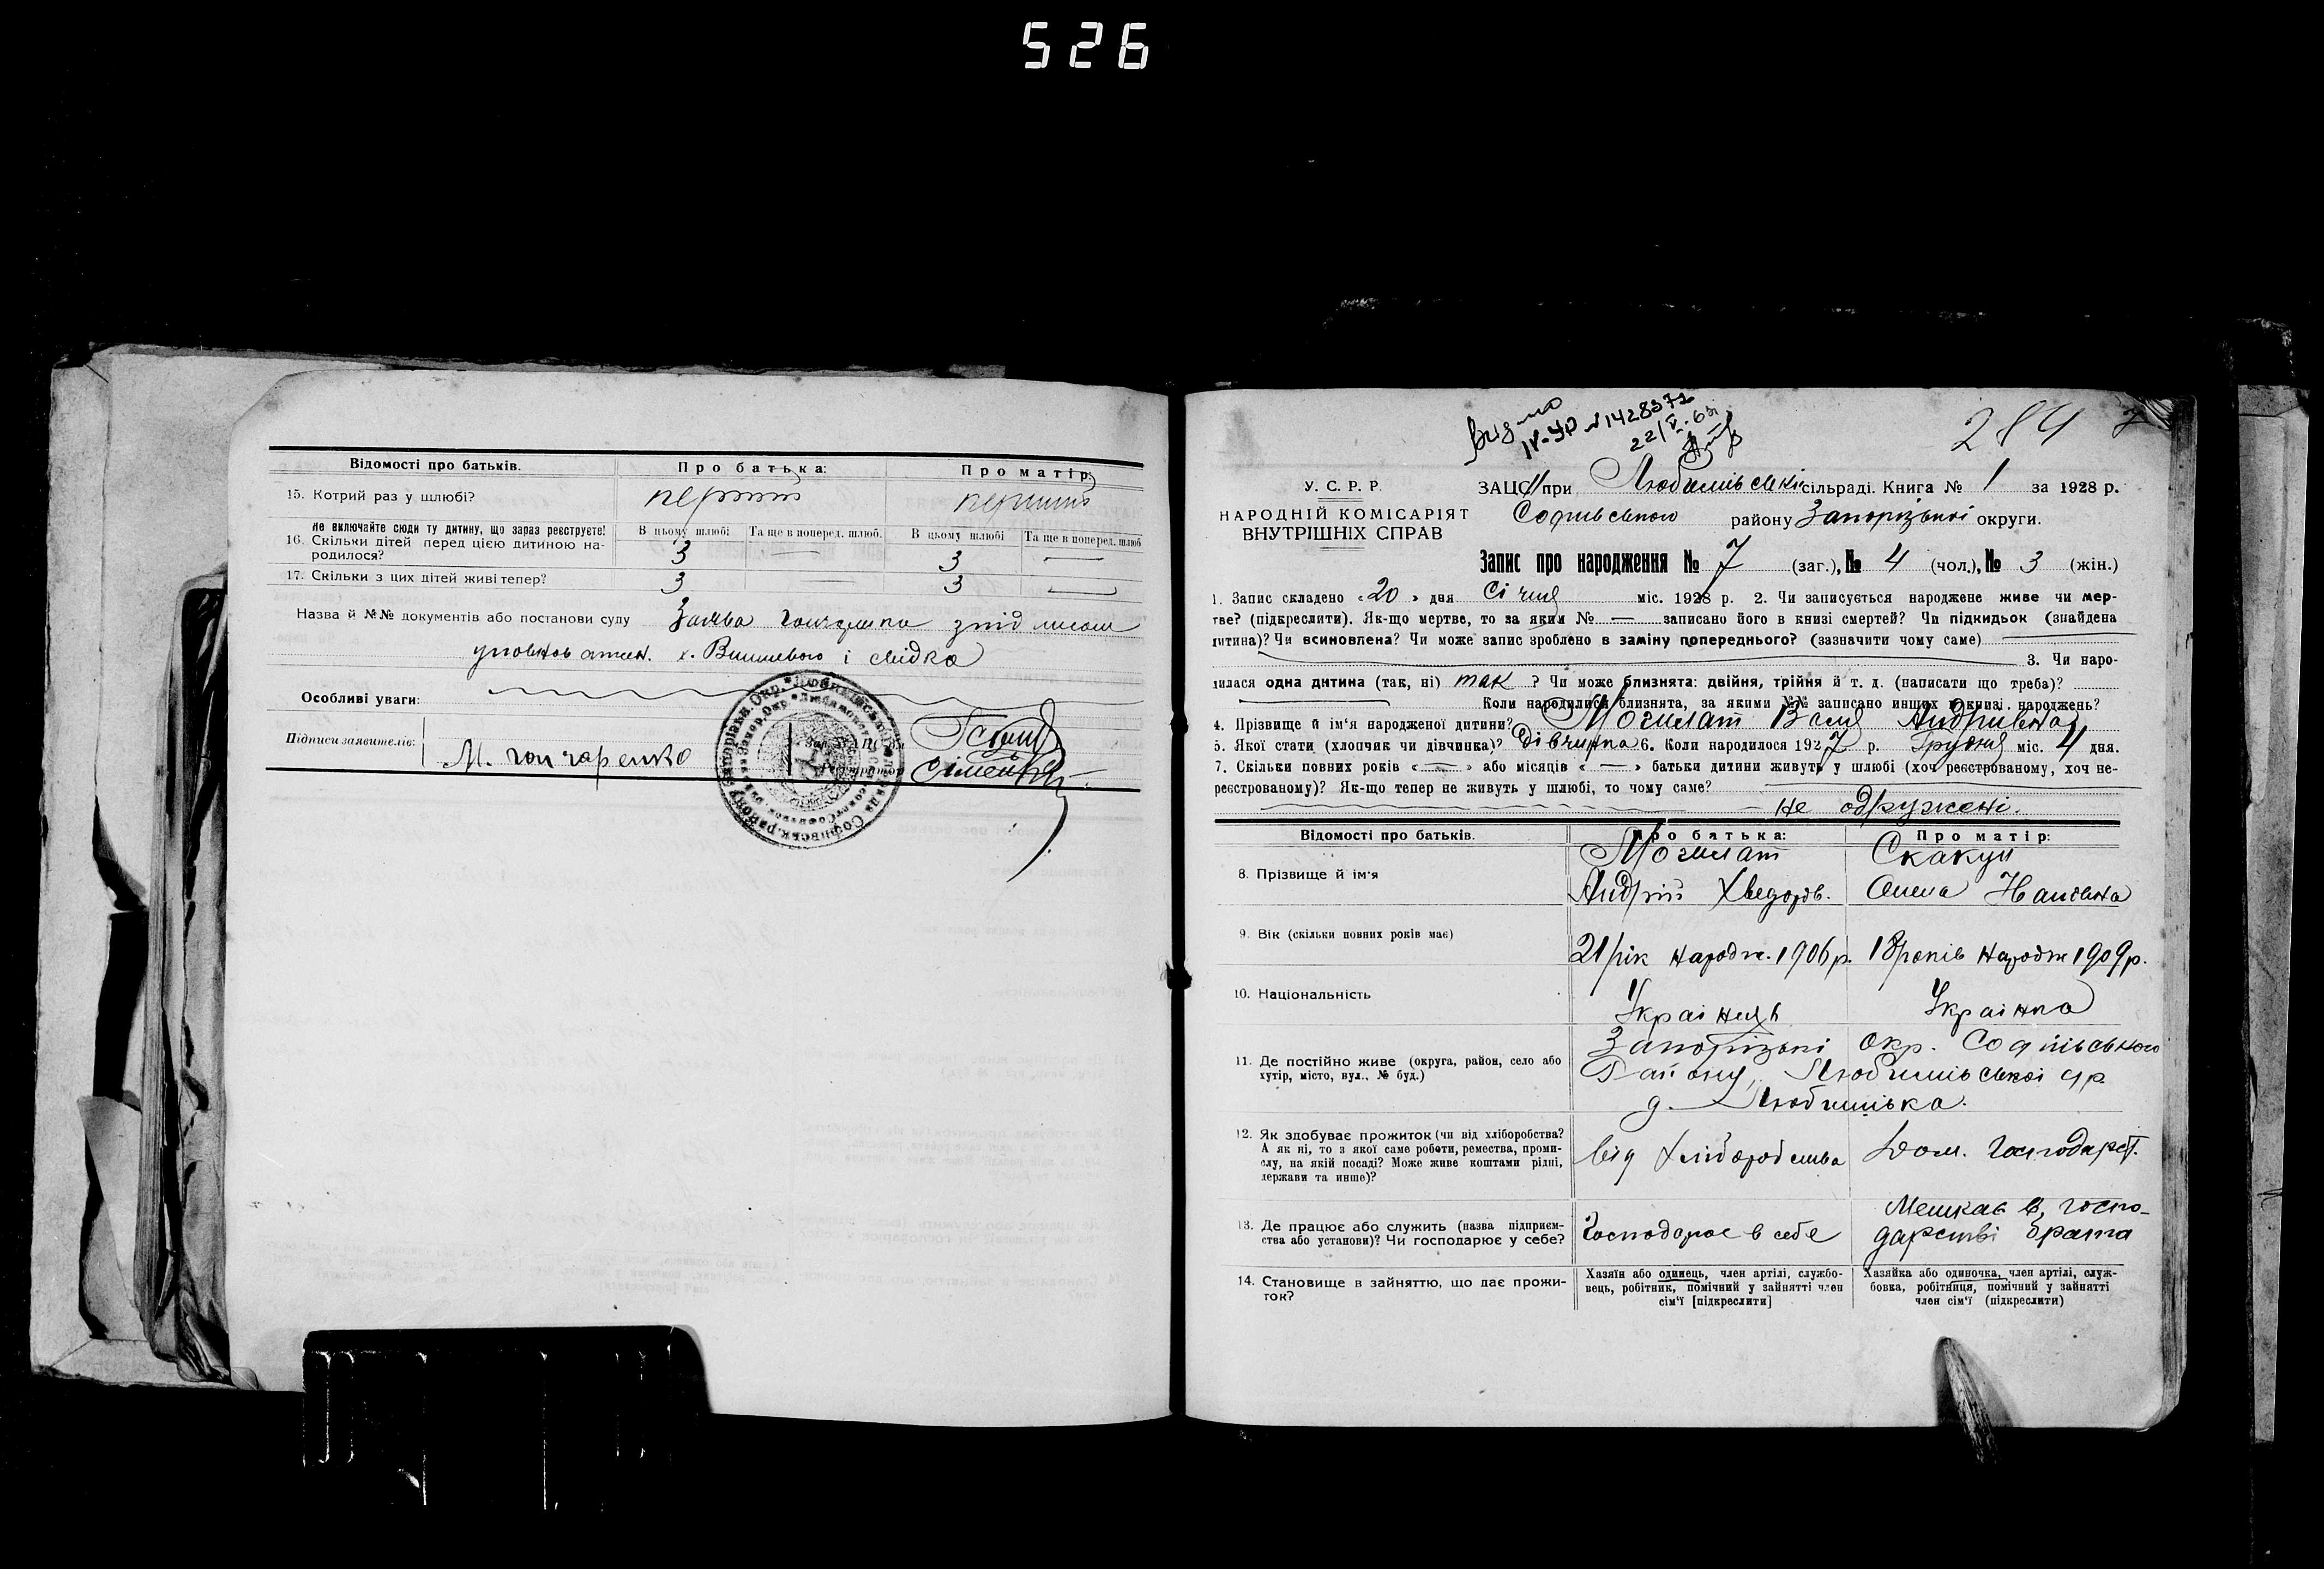 526
Відомості про батьків. Про батька: Про матір:
15. Котрий раз у шлюбі? перший перший
Не включайте сюди ту дитину, що зараз реєструєте! В цьому шлюбі Та ще в поперед. шлюб. В цьому шлюбі Та ще в поперед. шлюб
16. Скільки дітей перед цією дитиною на-
родилося? 3 — 3 —
17. Скільки з цих дітей живі тепер? 3 — 3 —
Назва й №№ документів або постанови суду Заява Гончаренка з підписом
уповноважен. х. Вишневого і свідка
Особливі уваги:
Підписи заявителів: М. Гончаренко
284 7
22/V-63
У. С. Р. Р.
НАРОДНІЙ КОМІСАРІЯТ
ВНУТРІШНІХ СПРАВ
ЗАЦС при Любимівській сільраді. Книга № 1 за 1928 р.
Софиевського району Запорізької округи.
Запис про народження № 7 (заг.), № 4 (чол.), № 3 (жін.)
1. Запис складено «20» дня Січня міс. 1928 р. 2. Чи записується народжене живе чи мер-
тве? (підкреслити). Як-що мертве, то за яким № — записано його в книзі смертей? Чи підкидьок (знайдена
дитина)? Чи всиновлена? Чи може запис зроблено в заміну попереднього? (зазначити чому саме)
3. Чи наро-
дилася одна дитина (так, ні) так ? Чи може близнята: двійня, трійня й т. д. (написати що треба)?
Коли народилися близнята, за якими №№ записано инших в книзі народжень?
4. Прізвище й ім'я народженої дитини? Могилат Валя Андриівна
5. Якої стати (хлопчик чи дівчинка)? дівчинка 6. Коли народилося 1927 р. Грудня міс. 4 дня.
7. Скільки повних років «—» або місяців «—» батьки дитини живуть у шлюбі (хоч реєстрованому, хоч не-
реєстрованому)? Як-що тепер не живуть у шлюбі, то чому саме?
не одружені.
Відомості про батьків. Про батька: Про матір:
8. Прізвище й ім'я Могилат Скакун
Андрій Хведорів. Олена
9. Вік (скільки повних років має)
21 рік народж. 1906 р. 18 років народж 1909 р.
10. Національність
Українець Українка
11. Де постійно живе (округа, район, село або
хутір, місто, вул., № буд.)
Запорізькі окр. Софиівського
Району, Любимівської с/р
д. Любимівка.
12. Як здобуває прожиток (чи від хліборобства?
А як ні, то з якої саме роботи, ремества, проми-
слу, на якій посаді? Може живе коштами рідні,
держави та инше)?
від хліборобства Дом. господарст.
13. Де працює або служить (назва підприєм-
ства або установи)? Чи господарює у себе?
Господарює в себе Мешкає в госпо-
дарстві брата
14. Становище в зайняттю, що дає прожи-
ток?
Хазяїн або одинець, член артілі, службо-
вець, робітник, помічний у зайнятті член
сім'ї [підкреслити]
Хазяйка або одиночка, член артілі, служ-
бовка, робітниця, помічний у зайнятті
член сім'ї (підкреслити)